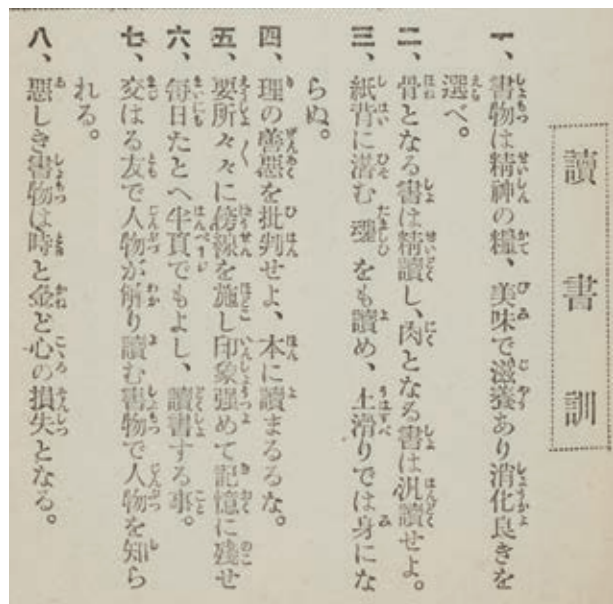 讀書訓
一、書物は精神の糧、美味で滋養あり消化良きを
選べ。
二、骨となる書は精讀し、肉となる書は汎讀せよ。
三、紙背に潜む理をも讀め、上滑りでは身にな
らぬ。
四、理の善惡を批判せよ、本に讀まるるな。
五、要所々々に傍線を施し印象强めて記憶に殘せ
六、每日たとへ半頁でもよし、讀書する事。
七、交はる友で人物が解り讀む書物で人物を知ら
れる。
八、惡しき書物は時と金と心の損失となる。